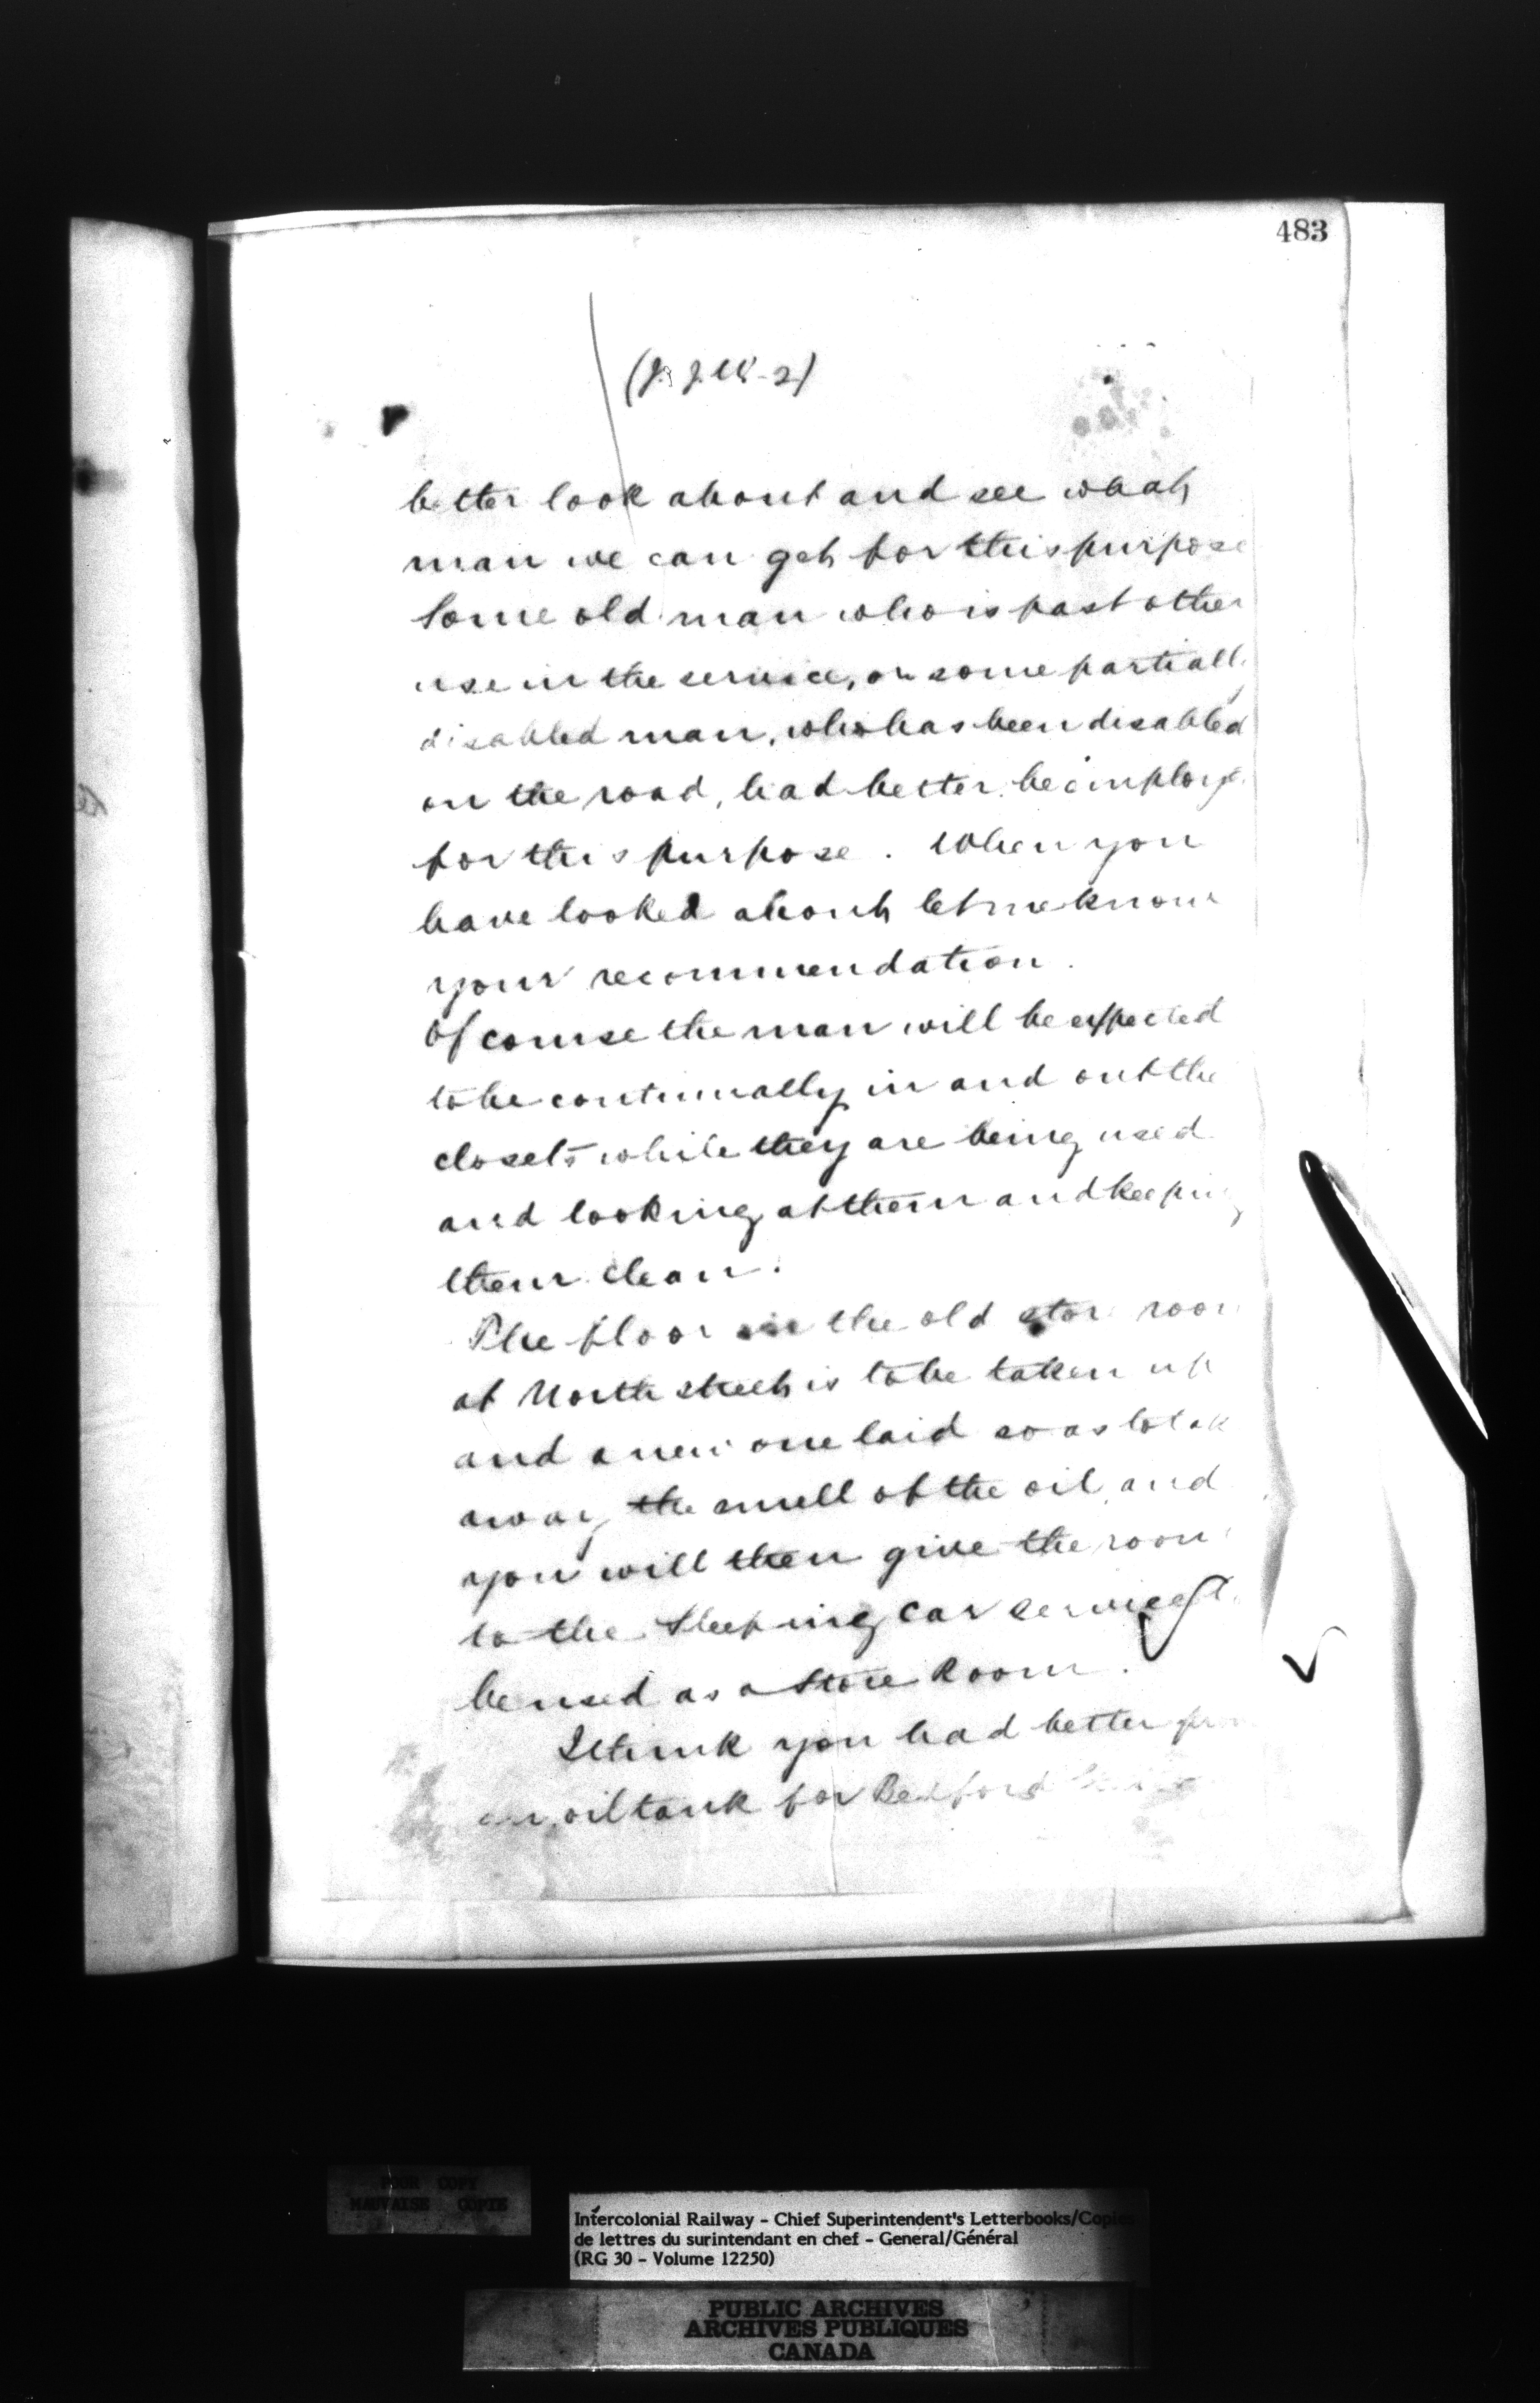 483
better look about and see what
man we can get for this purpose
Some old man who is past other
use in the service, or some partially
disabled man, who has been disabled
on the road, had better be employed
for this purpose. When you
have looked about let me know
your recommendation.
Of course the man will be expected
to be continually in and out the
closets while they are being used
and looking at them and keeping
them clean.
The floor in the old store room
at North street is to be taken up
and a new one laid so as to take
away the smell of the oil, and
you will then give the room
to the Sleeping Car service to
be used as a Store Room.
I think you had better
an oil tank for Bedford
POOR COPY
MAUVAISE COPIE
Intercolonial Railway - Chief Superintendent's Letterbooks/Copies
de lettres du surintendant en chef - General/Général
(RG 30 - Volume 12250)
PUBLIC ARCHIVES
ARCHIVES PUBLIQUES
CANADA